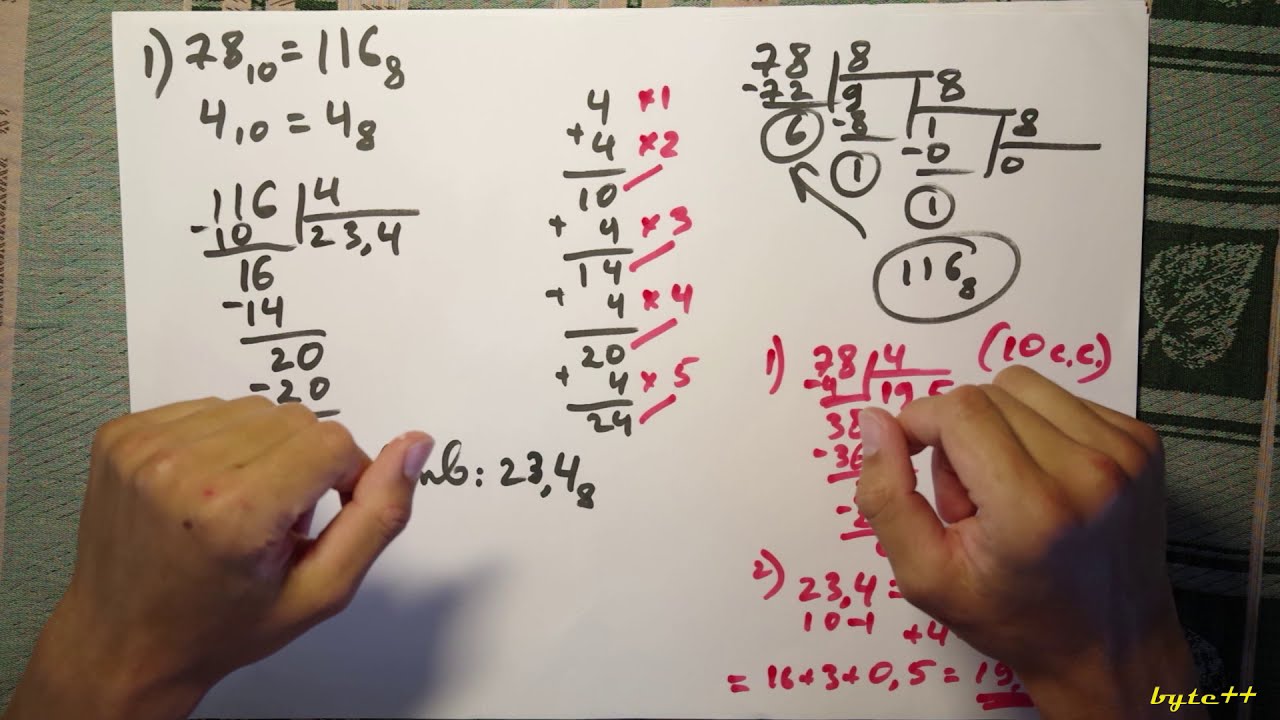 1) 78₁₀ = 116₈
4₁₀ = 4₈
-116 | 4
10 | 23,4
16
-14
20
-20
: 23,4₈
4 ×1
+4 ×2
10
+4 ×3
14
+4 ×4
20
+4 ×5
24
78 | 8
-72 | 9 | 8
6 -8 | 1 | 8
1 -0 | 0
1
116₈
1) 78 | 4 (10 с.с.)
-4 | 19,5
38
-36
2) 23,4 =
1 0 -1 +4
= 16+3+0,5 = 19,
byte++